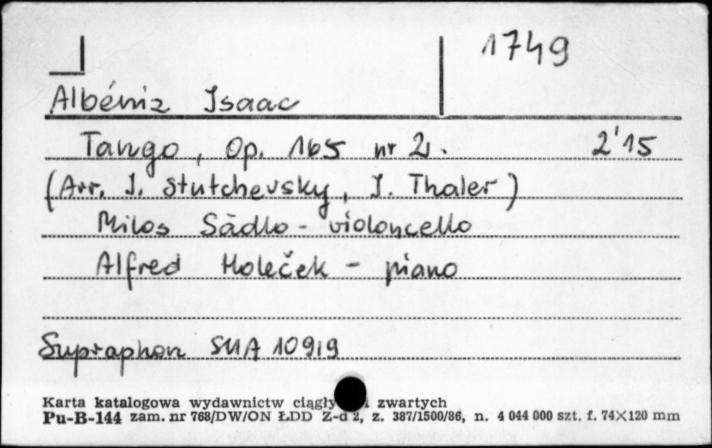 1749
Albéniz Isaac
Tango, Op. 165 nr 2. 2'15
(Arr. J. Stutchevsky, I. Thaler)
Milos Sādlo - violoncello
Alfred Holeček - piano
Supraphon SUA 10919
Karta katalogowa wydawnictw ciągły zwartych
Pu-B-144 zam. nr 768/DW/ON ŁDD Z-d 2, z. 387/1500/86, n. 4 044 000 szt. f. 74×120 mm